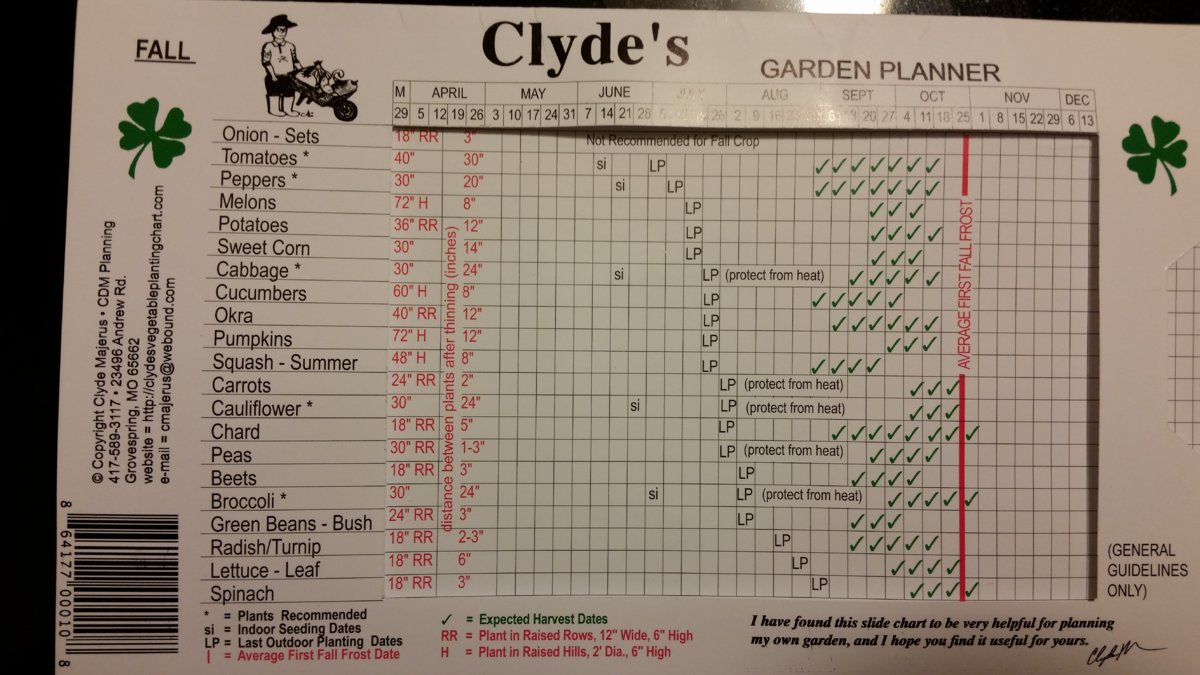 FALL
Clyde's
GARDEN PLANNER
M APRIL MAY JUNE JULY AUG SEPT OCT NOV DEC
29 5 12 19 26 3 10 17 24 31 7 14 21 28 5 26 2 9 16 6 13 20 27 4 11 18 25 1 8 15 22 29 6 13
Onion - Sets 18" RR 3" Not Recommended for Fall Crop
Tomatoes * 40" 30" si LP ✓✓✓✓✓✓✓
Peppers * 30" 20" si LP ✓✓✓✓✓✓✓
Melons 72" H 8" LP ✓✓✓
Potatoes 36" RR 12" LP ✓✓✓✓
Sweet Corn 30" 14" LP ✓✓✓
Cabbage * 30" 24" si LP (protect from heat) ✓✓✓✓✓
Cucumbers 60" H 8" LP ✓✓✓✓✓
Okra 40" RR 12" LP ✓✓✓✓✓✓
Pumpkins 72" H 12" LP ✓✓✓
Squash - Summer 48" H 8" LP ✓✓✓✓
Carrots 24" RR 2" LP (protect from heat) ✓✓✓
Cauliflower * 30" 24" si LP (protect from heat) ✓✓✓
Chard 18" RR 5" LP ✓✓✓✓✓✓✓✓
Peas 30" RR 1-3" LP (protect from heat) ✓✓✓✓
Beets 18" RR 3" LP ✓✓✓✓
Broccoli * 30" 24" si LP (protect from heat) ✓✓✓✓✓
Green Beans - Bush 24" RR 3" LP ✓✓✓
Radish/Turnip 18" RR 2-3" LP ✓✓✓✓✓
Lettuce - Leaf 18" RR 6" LP ✓✓✓✓
Spinach 18" RR 3" LP ✓✓✓✓
distance between plants after thinning (inches)
AVERAGE FIRST FALL FROST
© Copyright Clyde Majerus • CDM Planning
417-589-3117 • 23496 Andrew Rd.
Grovespring, MO 65662
website = http://clydesvegetableplantingchart.com
e-mail = cmajerus@webound.com
8 64177 00010 8
(GENERAL
GUIDELINES
ONLY)
* = Plants Recommended
si = Indoor Seeding Dates
LP = Last Outdoor Planting Dates
| = Average First Fall Frost Date
✓ = Expected Harvest Dates
RR = Plant in Raised Rows, 12" Wide, 6" High
H = Plant in Raised Hills, 2' Dia., 6" High
I have found this slide chart to be very helpful for planning
my own garden, and I hope you find it useful for yours.